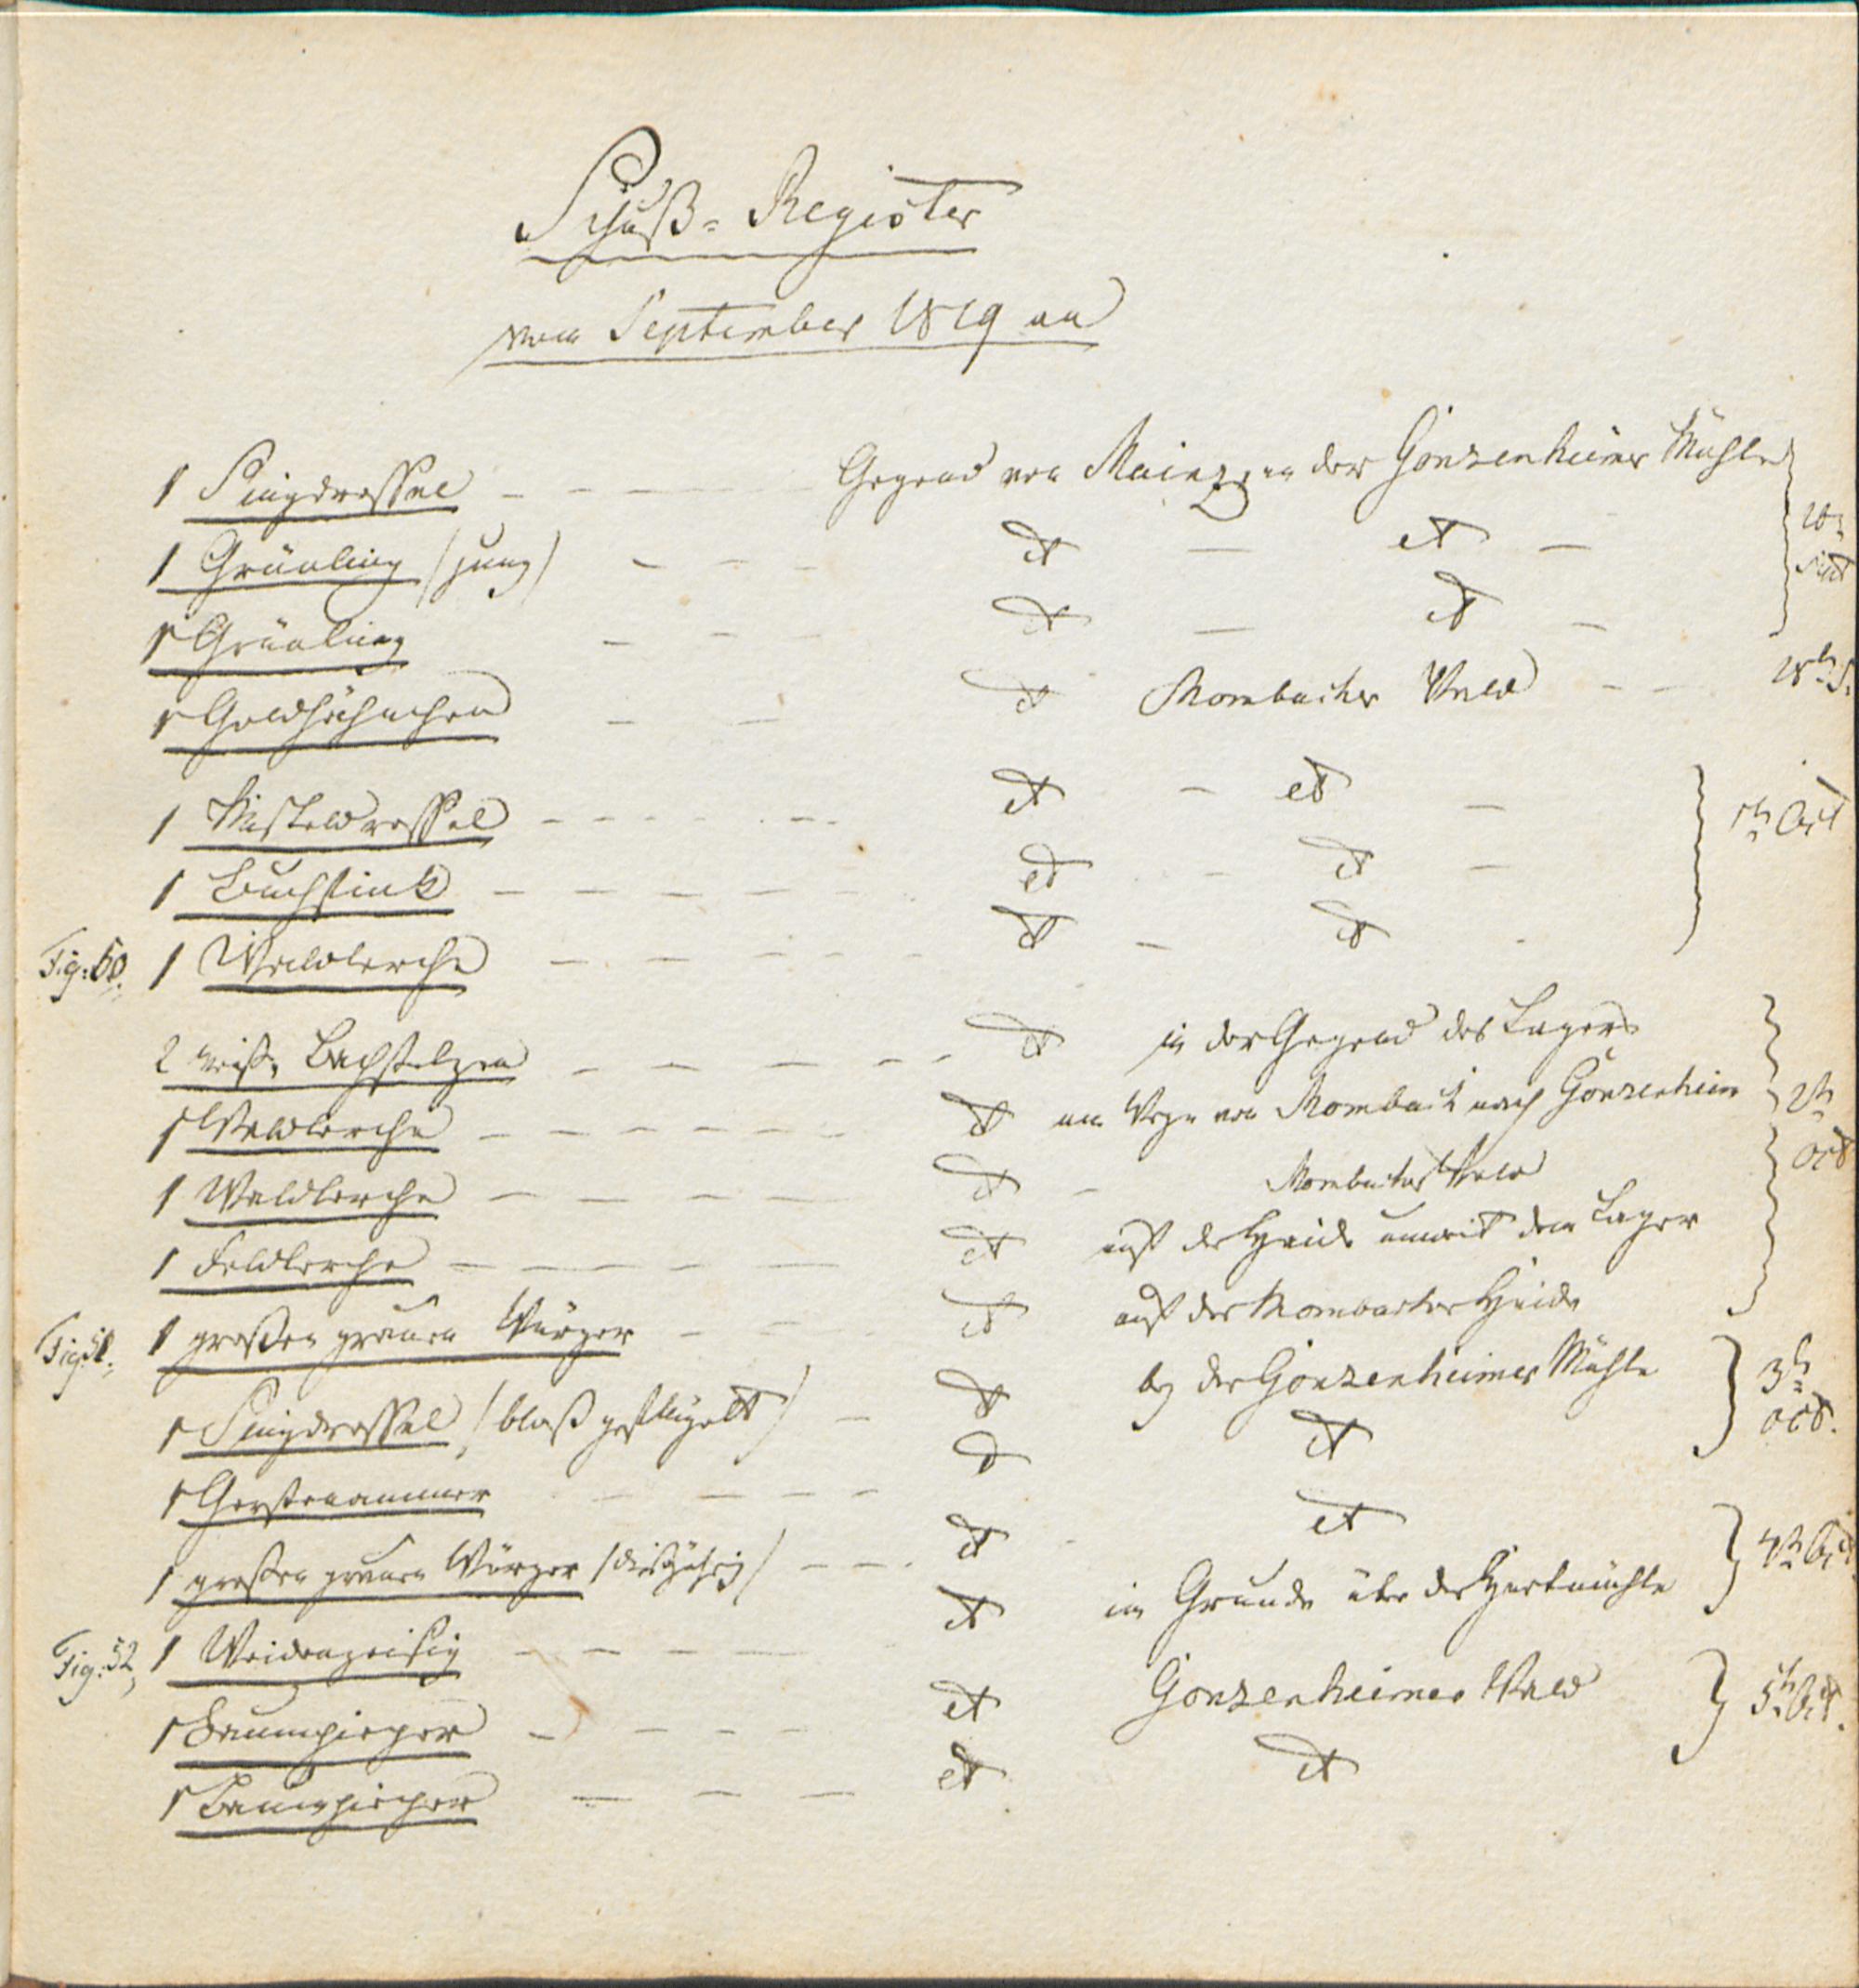 Schuß-Register
vom September 1819 an
1 Singdrossel - - - Gegend von Mainz, an der Gonzenheimer Mühle
1 Grünling (jung) - - - dt — dt —
1 Grünling - - - dt — dt —
1 Goldhähnchen - - dt Mombacher Wald - - 18t. S.
1 Misteldrossel - - - - - dt - dt — 1t. Oct
1 Buchfink - - - - - dt - dt —
Fig: 50. 1 Waldlerche - - - - dt - dt -
2 weiße Bachstelzen - - - - dt in der Gegend des Lagers
1 Waldlerche - - - - - - dt am Wege von Mombach nach Gonzenheim 2t.
1 Waldlerche - - - - dt - Mombacher Wald Oct
1 Feldlerche - - - - - dt auf der Heide unweit dem Lager
Fig: 51. 1 großen grauen Würger - - - dt auf der Mombacher Heide
1 Singdrossel (bloß geflügelt) - dt bey der Gonzenheimer Mühle 3t.
1 Gerstenammer - - - - dt dt Oct.
1 großen grauen Würger (diesjährig) - - - dt - dt
Fig: 52, 1 Weidenzeisig - - - - dt im Grunde über der Hartmühle 4t. Oct.
1 Baumpieper - - - - dt Gonzenheimer Wald 5t. Oct.
1 Baumpieper - - - dt dt